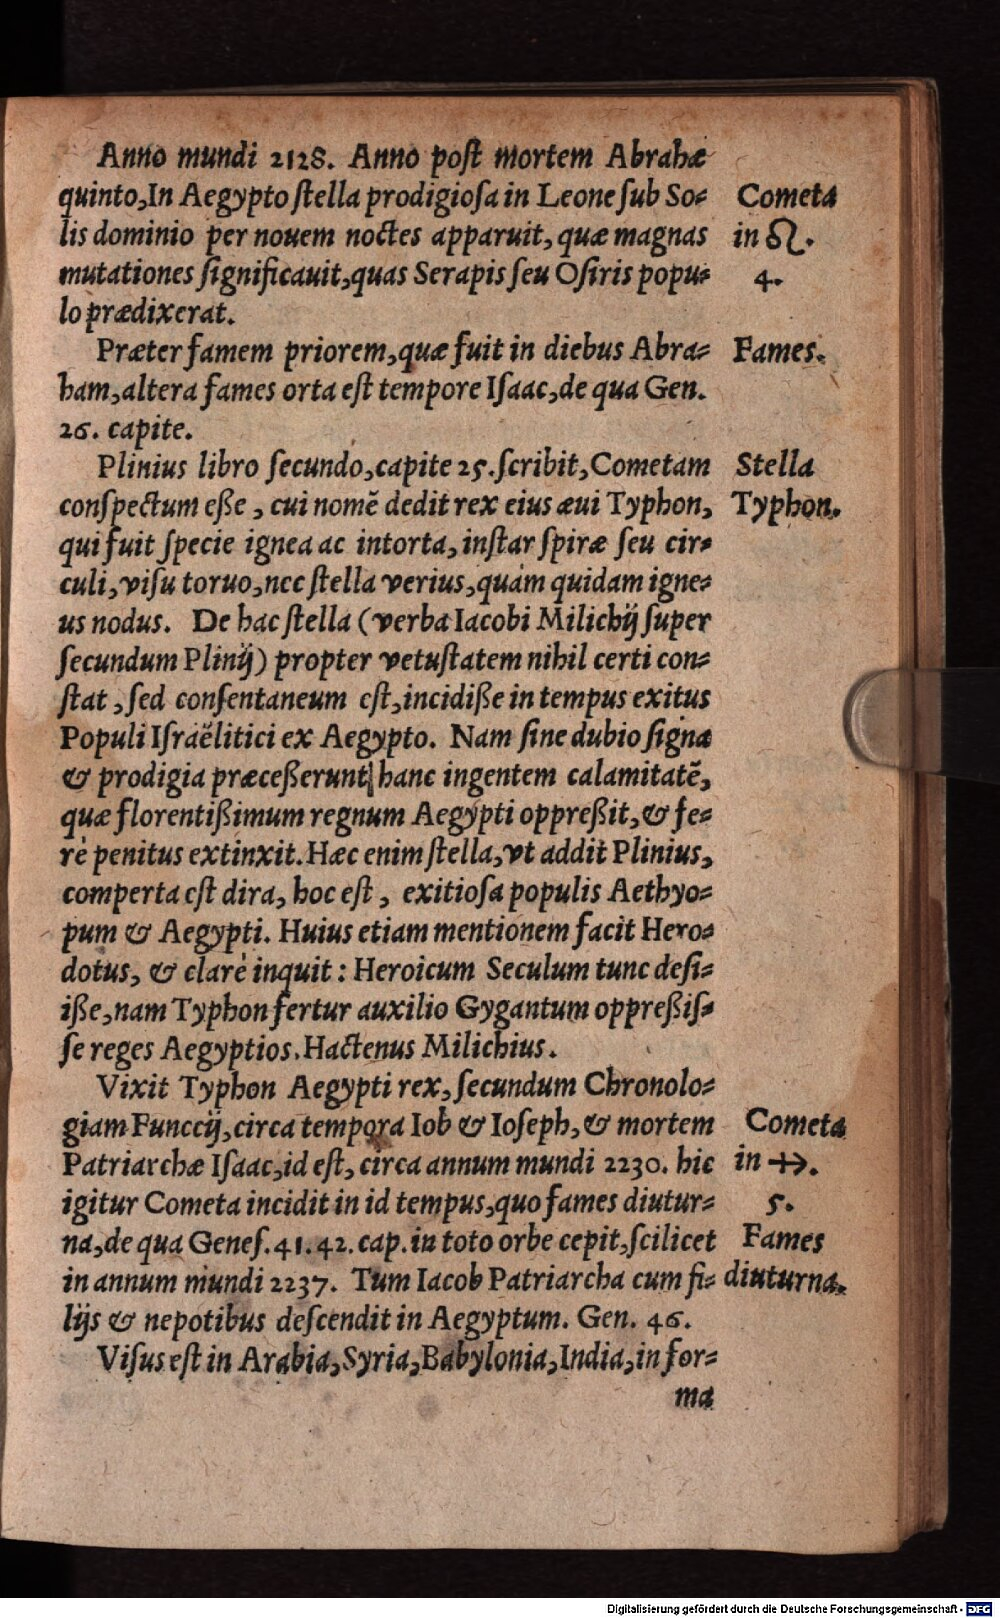 Anno mundi 2128. Anno poſt mortem Abrahæ
quinto,In Aegypto ſtella prodigioſa in Leone ſub So⸗
Cometa
lis dominio per nouem noctes apparuit, quæ magnas
in ♌.
mutationes ſignificauit,quas Serapis ſeu Oſiris popu⸗
4.
lo prædixerat.
Præter famem priorem,quæ fuit in diebus Abra⸗
Fames.
ham,altera fames orta eſt tempore Iſaac,de qua Gen.
26. capite.
Plinius libro ſecundo,capite 25.ſcribit,Cometam
Stella
conſpectum eße , cui nomē dedit rex eius æui Typhon,
Typhon.
qui fuit ſpecie ignea ac intorta,inſtar ſpiræ ſeu cir⸗
culi,viſu toruo,nec ſtella verius,quàm quidam igne⸗
us nodus. De hac ſtella (verba Iacobi Milichij ſuper
ſecundum Plinij) propter vetuſtatem nihil certi con⸗
ſtat , ſed conſentaneum eſt,incidiße in tempus exitus
Populi Iſraëlitici ex Aegypto. Nam ſine dubio ſigna
& prodigia præceßerunt hanc ingentem calamitatē,
quæ florentißimum regnum Aegypti oppreßit,& fe⸗
rè penitus extinxit.Hæc enim ſtella,vt addit Plinius,
comperta eſt dira, hoc eſt , exitioſa populis Aethyo⸗
pum & Aegypti. Huius etiam mentionem facit Hero⸗
dotus, & clarè inquit : Heroicum Seculum tunc deſi⸗
iße,nam Typhon fertur auxilio Gygantum oppreßiſ⸗
ſe reges Aegyptios.Hactenus Milichius.
Vixit Typhon Aegypti rex, ſecundum Chronolo⸗
giam Funccij,circa tempora Iob & Ioſeph, & mortem
Cometa
Patriarchæ Iſaac,id eſt, circa annum mundi 2230. hic
in ♐.
igitur Cometa incidit in id tempus,quo fames diutur⸗
5.
na,de qua Geneſ.41.42. cap.in toto orbe cepit,ſcilicet
Fames
in annum mundi 2237. Tum Iacob Patriarcha cum fi⸗
diuturna.
lijs & nepotibus deſcendit in Aegyptum. Gen. 46.
Viſus eſt in Arabia,Syria,Babylonia,India,in for⸗
ma
Digitalisierung gefördert durch die Deutsche Forschungsgemeinschaft - DFG